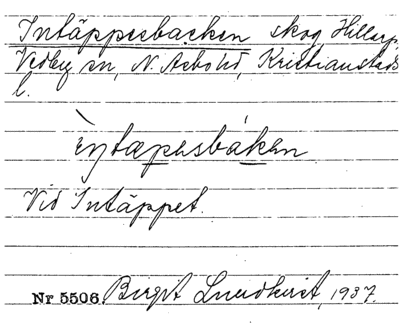 Intäppesbacken skog Hillarp,
Vedby sn, N. Åsbo hd, Kristianstads
l.
èntæpəsbákən
Vid Intäppet.
Nr 5506. Birgit Lundkvist, 1937.